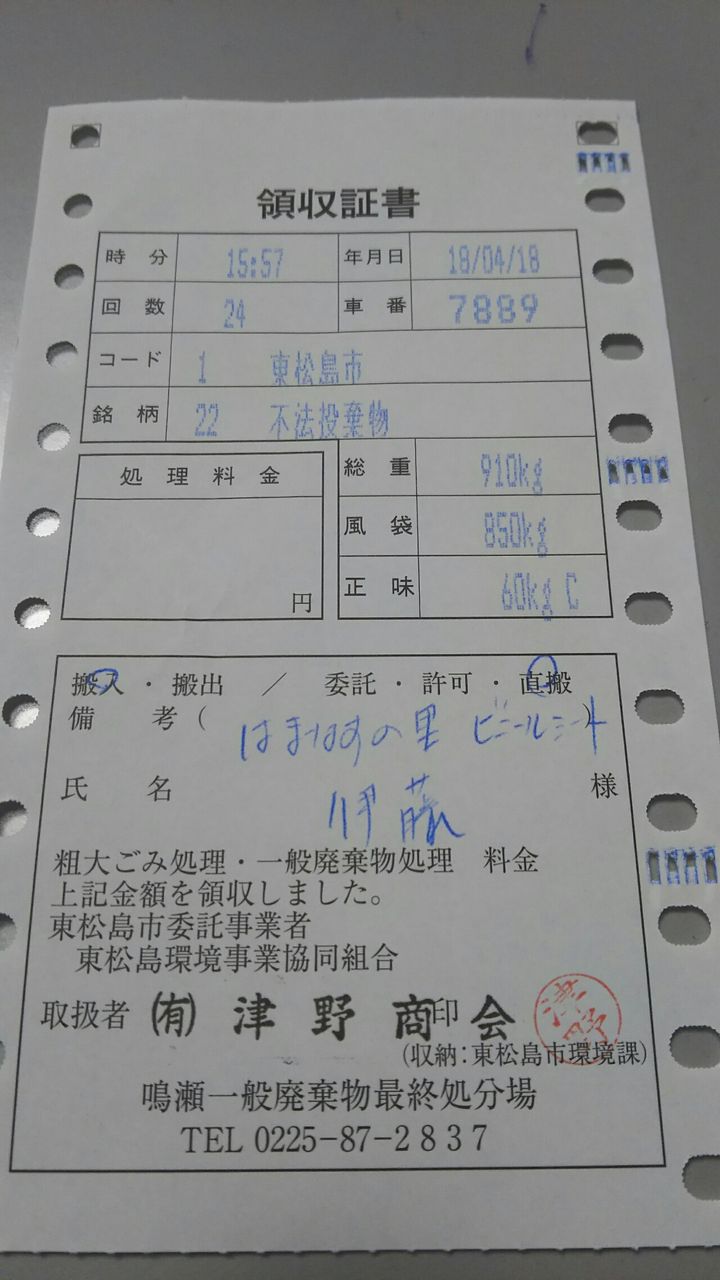 領収証書
時分 15:57 年月日 18/04/18
回数 24 車番 7889
コード 1 東松島市
銘柄 22 不法投棄物
処理料金 総重 910kg
風袋 850kg
円 正味 60kg C
搬入・搬出 / 委託・許可・直搬
備考(はまなすの里 ビニールシート)
氏名 伊藤 様
粗大ごみ処理・一般廃棄物処理 料金
上記金額を領収しました。
東松島市委託事業者
東松島環境事業協同組合
取扱者 ㈲ 津野商会 印 津野
(収納:東松島市環境課)
鳴瀬一般廃棄物最終処分場
TEL 0225-87-2837